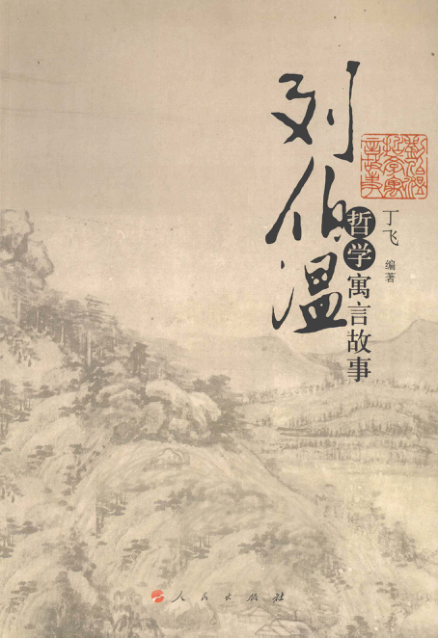 刘伯温
哲学寓言故事
丁飞 编著
人民出版社